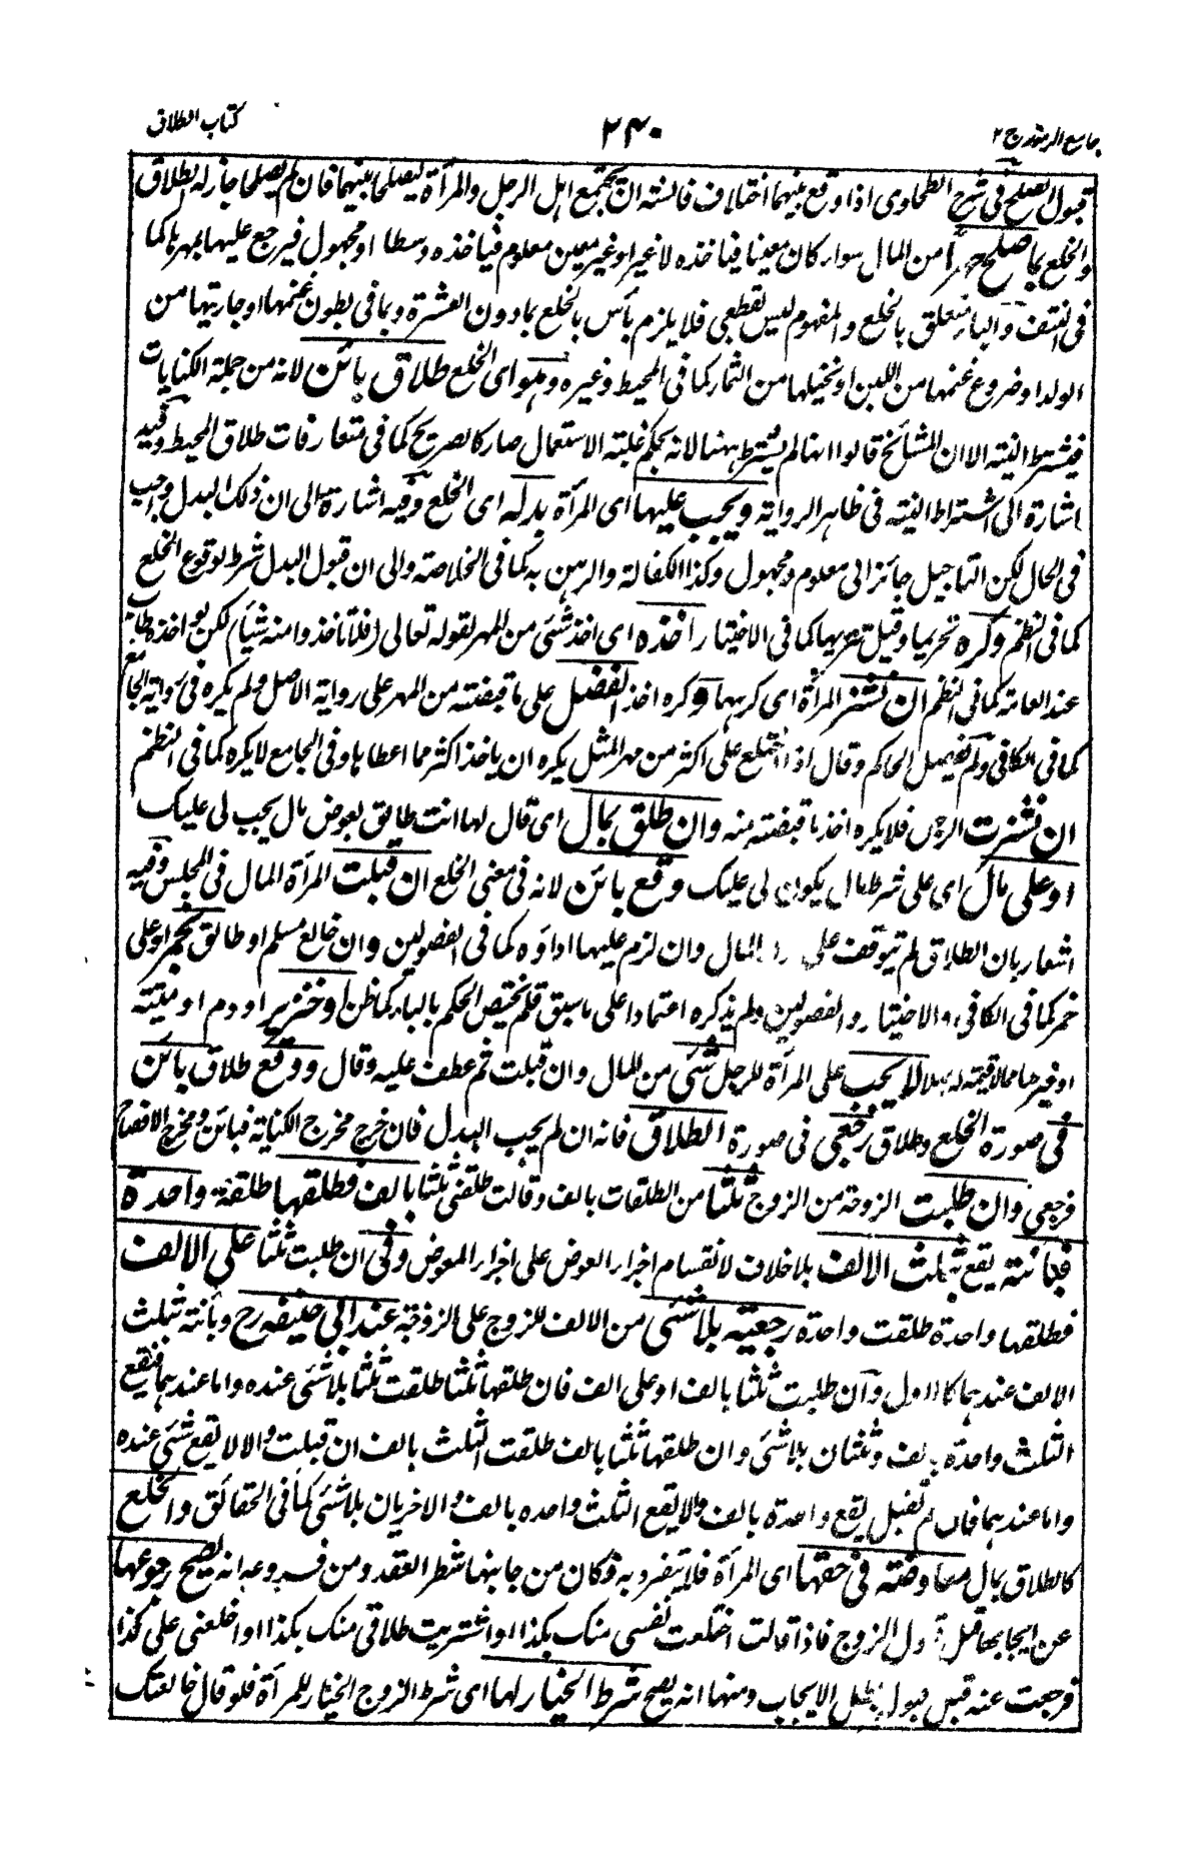 جامع الرموز ج ٢
٢٤٠
كتاب الطلاق
قبول الصلح فى شرح الطحاوى اذا وقع بينهما اختلاف فالسنة ان يجتمع اهل الرجل والمرأة ليصلحا بينهما فان لم يصلحا جاز له الطلاق
والخلع بما صلح مهرا من المال سواء كان معينا فياخذه لا غير او غير معين معلوم فياخذه وسطا او مجهول فيرجع عليها بمهرها كما
فى النتف والباء متعلق بالخلع والمفهوم ليس بقطعى فلا يلزم بأس بالخلع بما دون العشرة وبما فى بطون غنمها او جاريتها من
الولد او ضروع غنمها من اللبن او نخيلها من الثمار كما فى المحيط وغيره وهو اى الخلع طلاق بائن لانه من جملة الكنايات
فيشترط النية الا ان المشائخ قالوا انها لم يشترط ههنا لانه بحكم غلبة الاستعمال صار كالصريح كما فى متعارفات طلاق المحيط وفيه
اشارة الى اشتراط النية فى ظاهر الرواية ويجب عليها اى المرأة بدله اى الخلع وفيه اشارة الى ان ذلك البدل واجب
فى الحال لكن التاجيل جائز الى معلوم ومجهول وكذا الكفالة والرهن به كما فى الخلاصة والى ان قبول البدل شرط لوقوع الخلع
كما فى النظم وكره تحريما وقيل تنزيها كما فى الاختيار اخذه اى اخذ شئ من المهر لقوله تعالى فلا تاخذوا منه شيئا لكن لو اخذه طاب
عند العامة كما فى النظم ان نشز المرأة اى كرهها وكره اخذ الفضل على ما قبضته من المهر على رواية الاصل ولم يكره فى رواية الجامع
كما فى الكافى ولم يفصل الحاكم وقال اذا اختلع على اكثر من مهر المثل يكره ان ياخذ اكثر مما اعطاها وفى الجامع لا يكره كما فى النظم
ان نشزت الرجل فلا يكره اخذ ما قبضته منه وان طلق بمال اى قال لها انت طالق بعوض مال يجب لى عليك
او على مال اى على شرط مال يكون لى عليك وقع بائن لانه فى معنى الخلع ان قبلت المرأة المال فى المجلس وفيه
اشعار بان الطلاق لم يتوقف على المال وان لزم عليها اداؤه كما فى الفصولين وان خالع مسلم او طالق بخمر او على
خمر كما فى الكافى والاختيار والفصولين ولم يذكره اعتمادا على ما سبق فلم يختص الحكم بالباء كما ظن او خنزير او دم او ميتة
او غيرها مما لا قيمة له لا يجب على المرأة للرجل شئ من المال وان قبلت ثم عطف عليه وقال ووقع طلاق بائن
فى صورة الخلع وطلاق رجعى فى صورة الطلاق فانه ان لم يجب البدل فان خرج مخرج الكناية فبائن ومخرج الافصاح
فرجعى وان طلبت الزوجة من الزوج ثلثا من الطلقات بالف وقالت طلقنى ثلثا بالف فطلقها طلقة واحدة
فبائنة يقع بثلث الالف بلا خلاف لانقسام اجزاء العوض على اجزاء المعوض وفى ان طلبت ثلثا على الالف
فطلقها واحدة طلقت واحدة رجعية بلا شئ من الالف للزوج على الزوجة عند ابى حنيفه رح وبائنة بثلث
الالف عندهما كالاول وان طلبت ثلثا بالف او على الف فان طلقها ثلثا طلقت ثلثا بلا شئ عنده واما عندهما فيقع
الثلث واحدة بالف وثنتان بلا شئ وان طلقها ثلثا بالف طلقت الثلث بالف ان قبلت والا لا يقع شئ عنده
واما عندهما فان لم تقبل يقع واحدة بالف ولا يقع الثلث واحده بالف والاخريان بلا شئ كما فى الحقائق والخلع
كالطلاق بمال معاوضته فى حقها اى المرأة فلا تتفرد به فكان من جانبها شطر العقد ومن فروعه انه يصح رجوعها
عن ايجابها قبل قبول الزوج فاذا قالت اختلعت نفسى منك بكذا او اشتريت طلاقى منك بكذا او اخلعنى على كذا
فرجعت عنه قبل قبوله بطل الايجاب ومنها انه يصح شرط الخيار لها اى شرط الزوج الخيار للمرأة فلو قال خالعتك